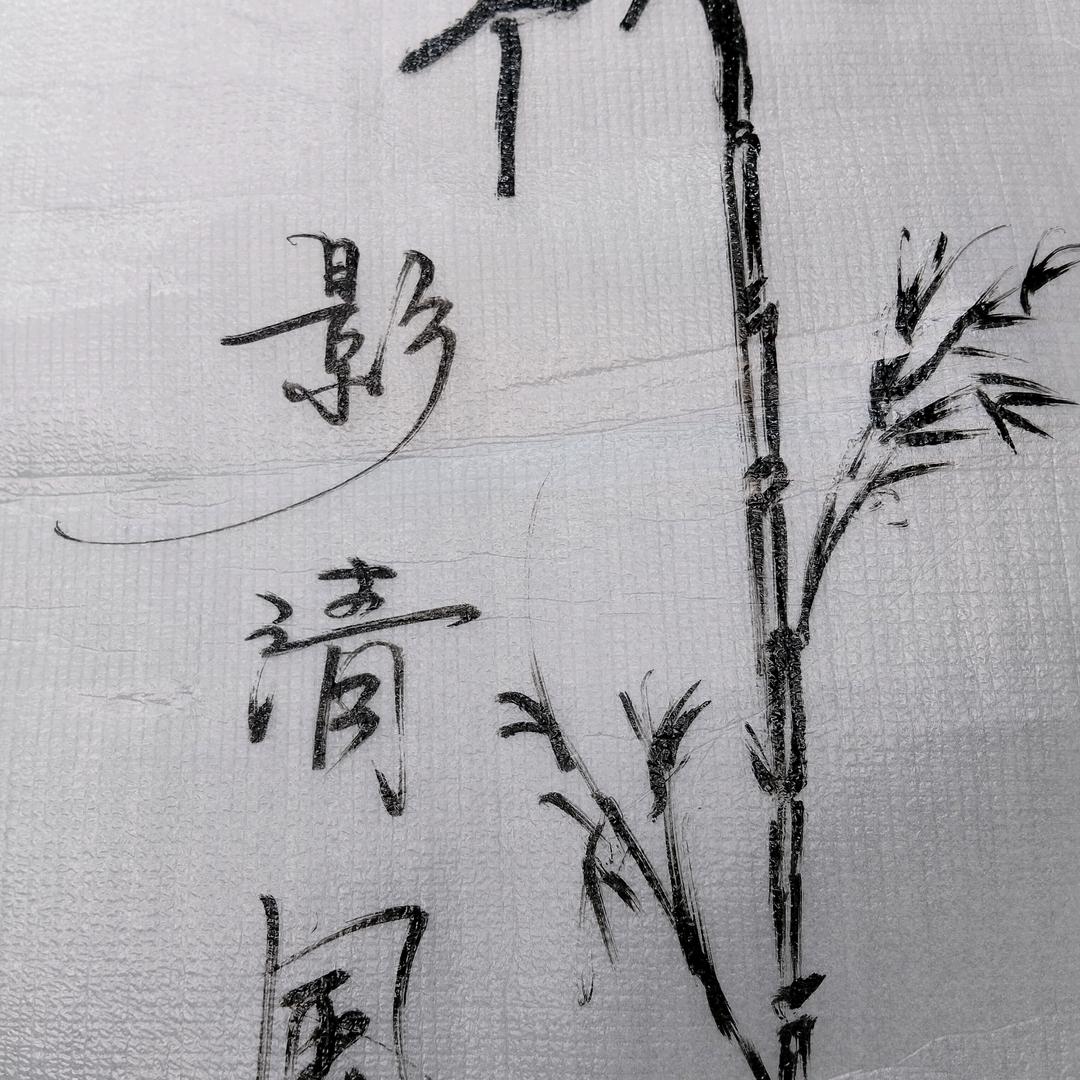 竹影清風